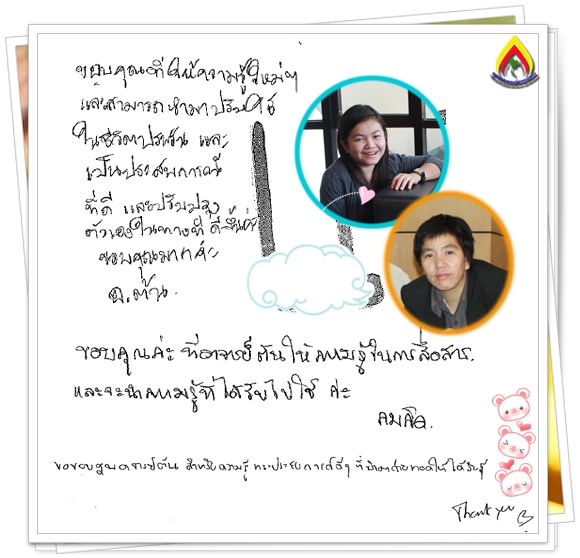 ขอบคุณที่ให้ความรู้ใหม่ๆ
และสามารถนำมาปรับใช้
ในชีวิตประจำวัน และ
เป็นประสบการณ์
ที่ดี และปรับปรุง
ตัวเองในทางที่ดีขึ้นค่ะ
ขอบคุณมากค่ะ
อ.ต้น.
ขอบคุณค่ะ ที่อาจารย์ต้นให้ความรู้ในการสื่อสาร.
และจะนำความรู้ที่ได้รับไปใช้ ค่ะ
ขอขอบคุณอาจารย์ต้น สำหรับความรู้ ประสบการณ์ดีๆ ที่นำมาถ่ายทอดให้ได้รับรู้
Thank you